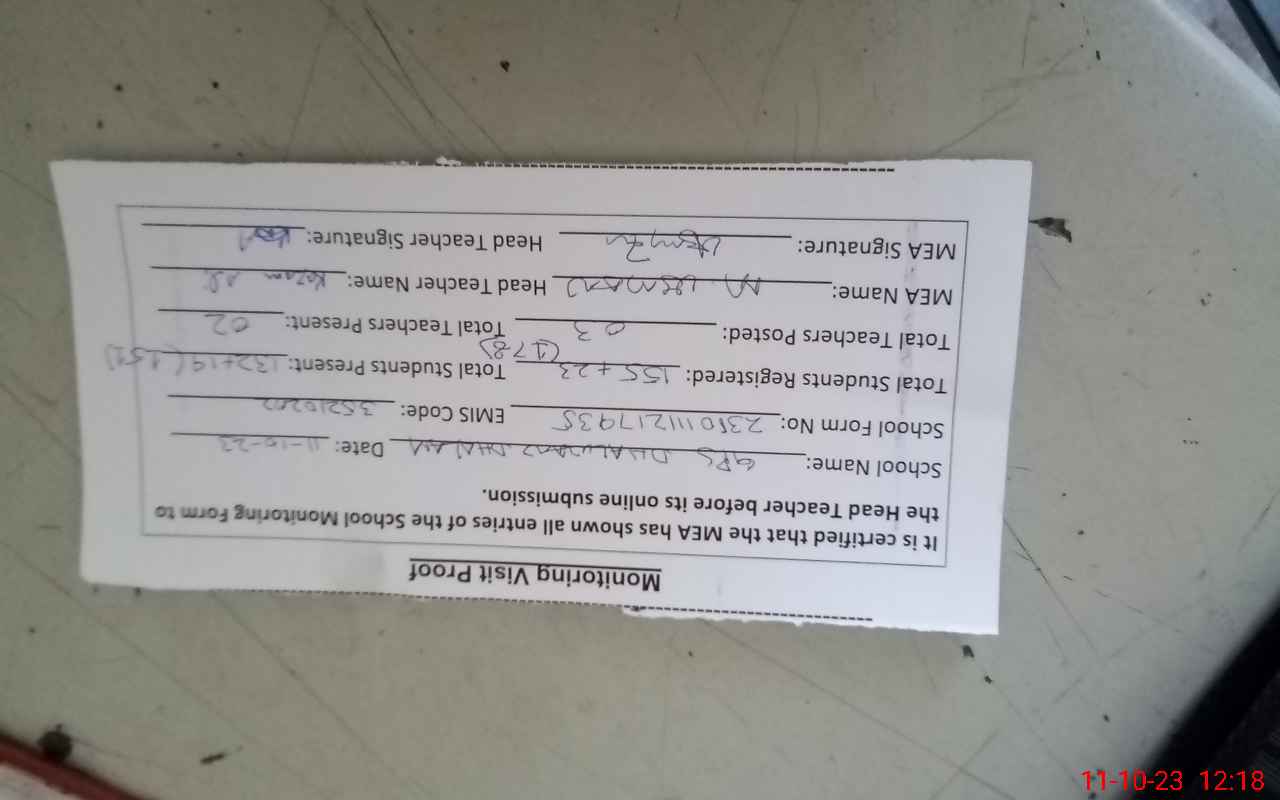 Monitoring Visit Proof
It is certified that the MEA has shown all entries of the School Monitoring Form to
the Head Teacher before its online submission.
School Name: GPS Date: 11-10-23
School Form No: EMIS Code: 35210202
Total Students Registered: 155 + 23 (178) Total Students Present: 132+19 (151)
Total Teachers Posted: 03 Total Teachers Present: 02
MEA Name: M. USMAN Head Teacher Name: Kazam Ali
MEA Signature: Head Teacher Signature:
11-10-23 12:18